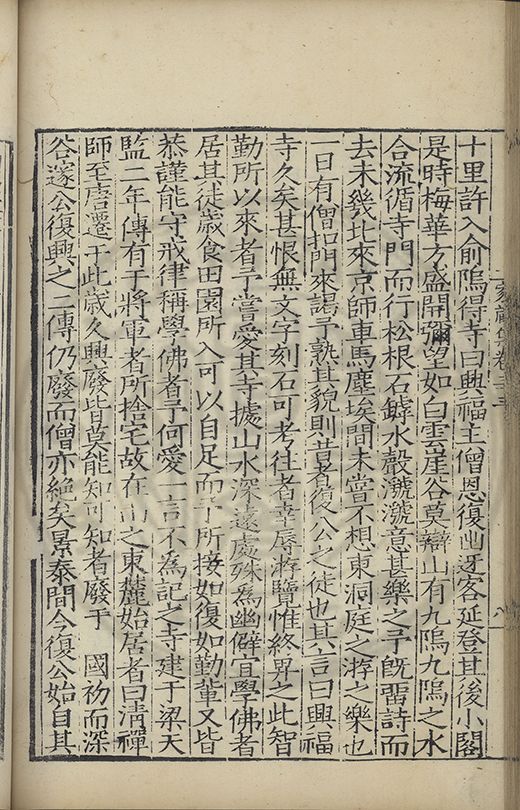 十里許入俞隖得寺曰興福主僧恩復出迓客延登其後小閣
是時梅華方盛開彌望如白雲崖谷莫辯山有九隖九隖之水
合流循寺門而行松根石罅水聲㶁㶁意甚樂之予旣畱詩而
去未幾北來京師車馬塵埃間未嘗不想東洞庭之游之樂也
一日有僧扣門來謁予熟其貌則昔者復公之徒也其言曰興福
寺久矣甚恨無文字刻石可考往者幸辱游覽惟終畀之此智
勤所以來者予嘗愛其寺據山水深遠處殊為幽僻宜學佛者
居其徒歲食田園所入可以自足而丁所接如復如勤輩又皆
恭謹能守戒律稱學佛者予何愛一言不為記之寺建于梁天
監二年傳有于將軍者所捨宅故在山之東麓始居者曰清禪
師至唐遷于此歲久興廢皆莫能知可知者廢于 國初而深
谷邃公復興之二傳仍廢而僧亦絕矣景泰間今復公始自其
家藏集卷三十三
八